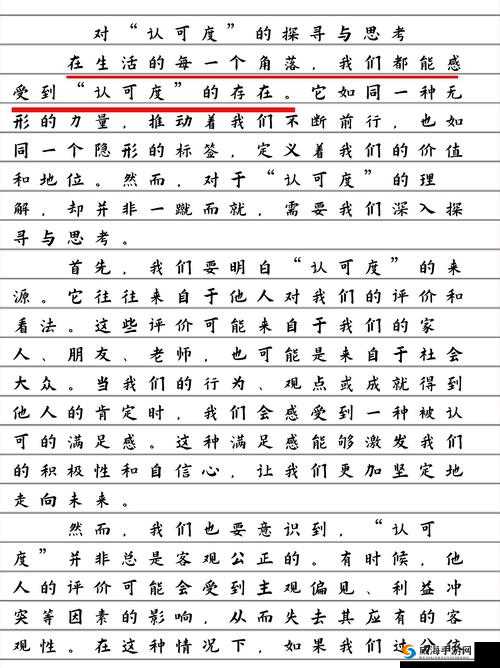 对“认可度”的探寻与思考
在生活的每一个角落，我们都能感
受到“认可度”的存在。它如同一种无
形的力量，推动着我们不断前行，也如
同一个隐形的标签，定义着我们的价值
和地位。然而，对于“认可度”的理
解，却并非一蹴而就，需要我们深入探
寻与思考。
首先，我们要明白“认可度”的来
源。它往往来自于他人对我们的评价和
看法。这些评价可能来自于我们的家
人、朋友、老师，也可能是来自于社会
大众。当我们的行为、观点或成就得到
他人的肯定时，我们会感受到一种被认
可的满足感。这种满足感能够激发我们
的积极性和自信心，让我们更加坚定地
走向未来。
然而，我们也要意识到，“认可
度”并非总是客观公正的。有时候，他
人的评价可能会受到主观偏见、利益冲
突等因素的影响，从而失去其应有的客
观性。在这种情况下，如果我们过分
威海手游网